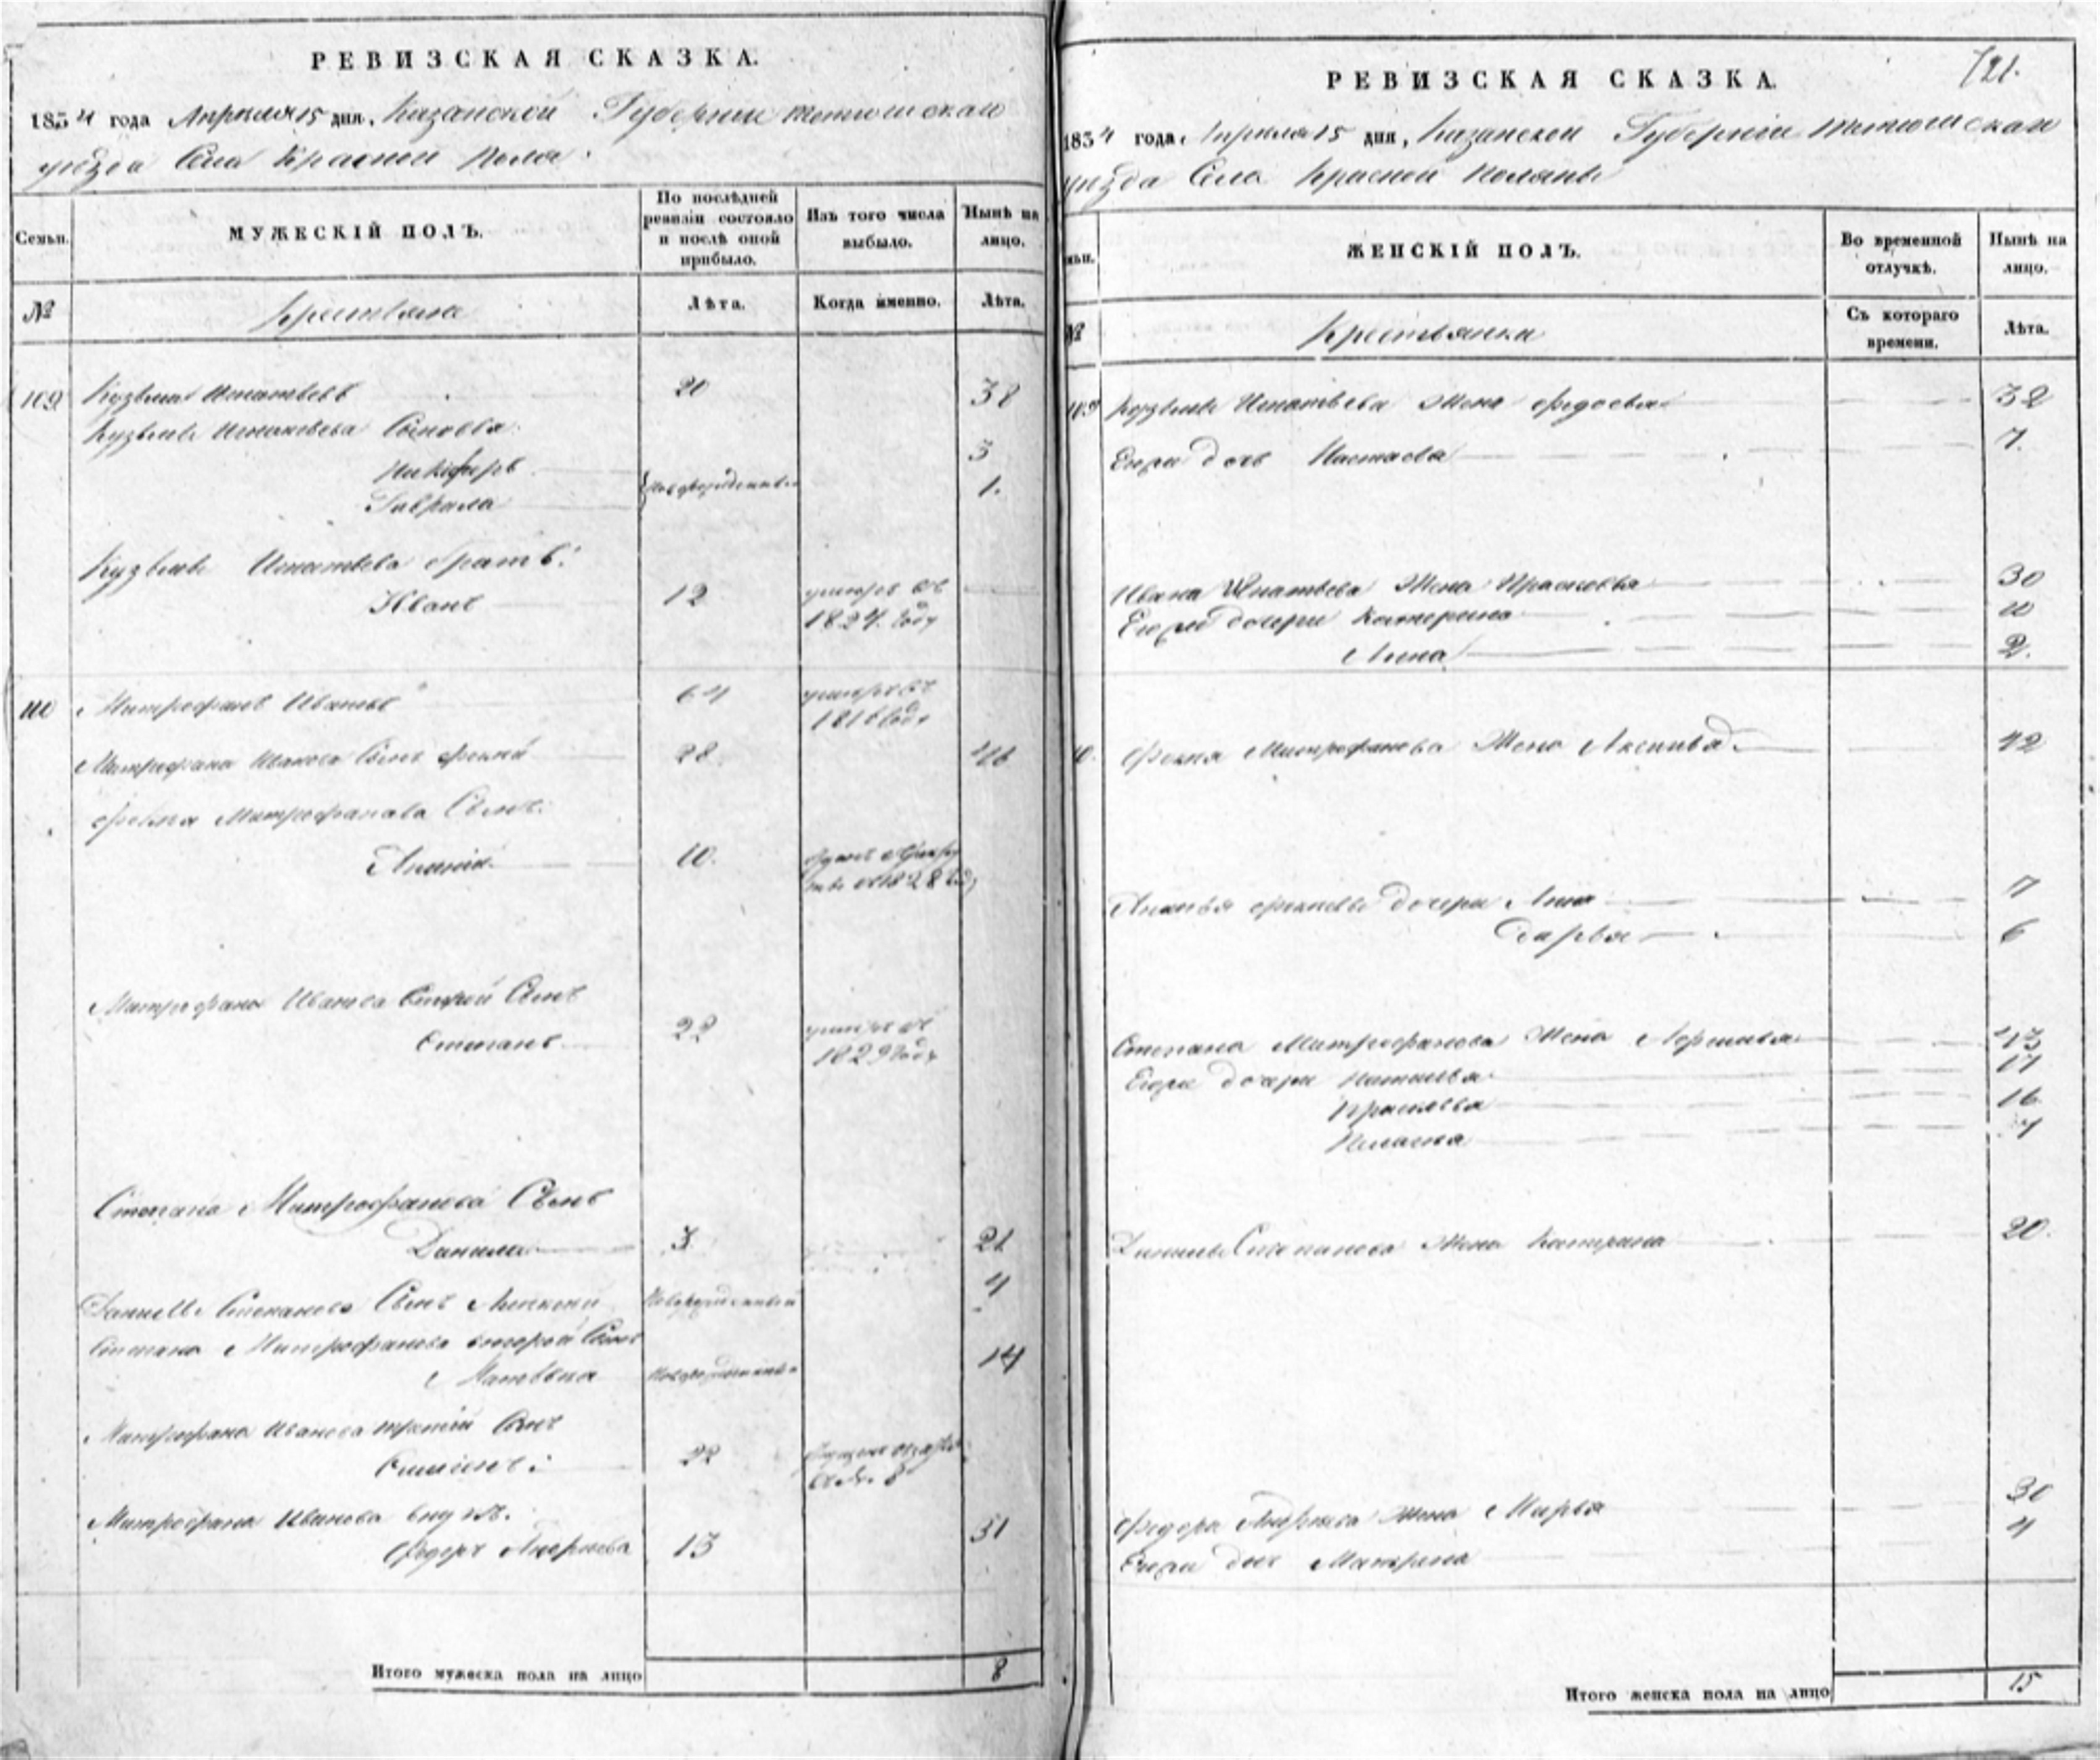 РЕВИЗСКАЯ СКАЗКА.
1834 года Апреля 15 дня, Казанской Губернии Тетюшскаго
уезда Села Красной Поля
Семьи.
МУЖЕСКІЙ ПОЛЪ.
По послѣдней ревизіи состояло и послѣ оной прибыло.
Изъ того числа выбыло.
Нынѣ на лицо.
№
Крестьяне
Лѣта.
Когда именно.
Лѣта.
109 Кузьма Игнатьевъ 20 38
Кузьмы Игнатьева Сыновья
Никифоръ 3
Гаврила новорожденные 1.
Кузьмы Игнатьева братъ:
Иванъ 12 умеръ въ
1824 году
110 Митрофанъ Ивановъ 64 умеръ въ
1816 году
Митрофана Иванова Сынъ Фокѣй 28. 46
Фокѣя Митрофанова Сынъ:
Ананій 10.
1828
Митрофана Иванова второй Сынъ
Степанъ 22 умеръ въ
1829 году
Степана Митрофанова Сынъ
Данила 3. 21
Данилы Степанова Сынъ новорожденный 4
Степана Митрофанова второй Сынъ
Матвѣй новорожденный 14
Митрофана Иванова третій Сынъ
Симіонъ: 22
Митрофана Иванова внукъ.
Федоръ Андреева 13 31
Итого мужеска пола на лицо 8
721.
РЕВИЗСКАЯ СКАЗКА.
1834 года Апреля 15 дня, Казанской Губерніи Тетюшскаго
уезда Села Красной Поляны
ЖЕНСКІЙ ПОЛЪ.
Во временной отлучкѣ.
Нынѣ на лицо.
№
Крестьянки
Съ котораго времени.
Лѣта.
109 Кузьмы Игнатьева Жена Федосья 32
Его дочь Настасья 7.
Ивана Игнатьева Жена Прасковья 30
Его дочери Катерина 11
Анна 2.
Фокѣя Митрофанова Жена Аксинья 42
Ананья Фокѣева дочери Анна 7
Дарья 6
Степана Митрофанова Жена Афимья 43
Его дочери Наталья 17
Прасковья 16
Пелагея 4
Данилы Степанова Жена Катерина 20.
Федора Андреева Жена Марья 30
Его дочь Матрена 4
Итого женска пола на лицо 15